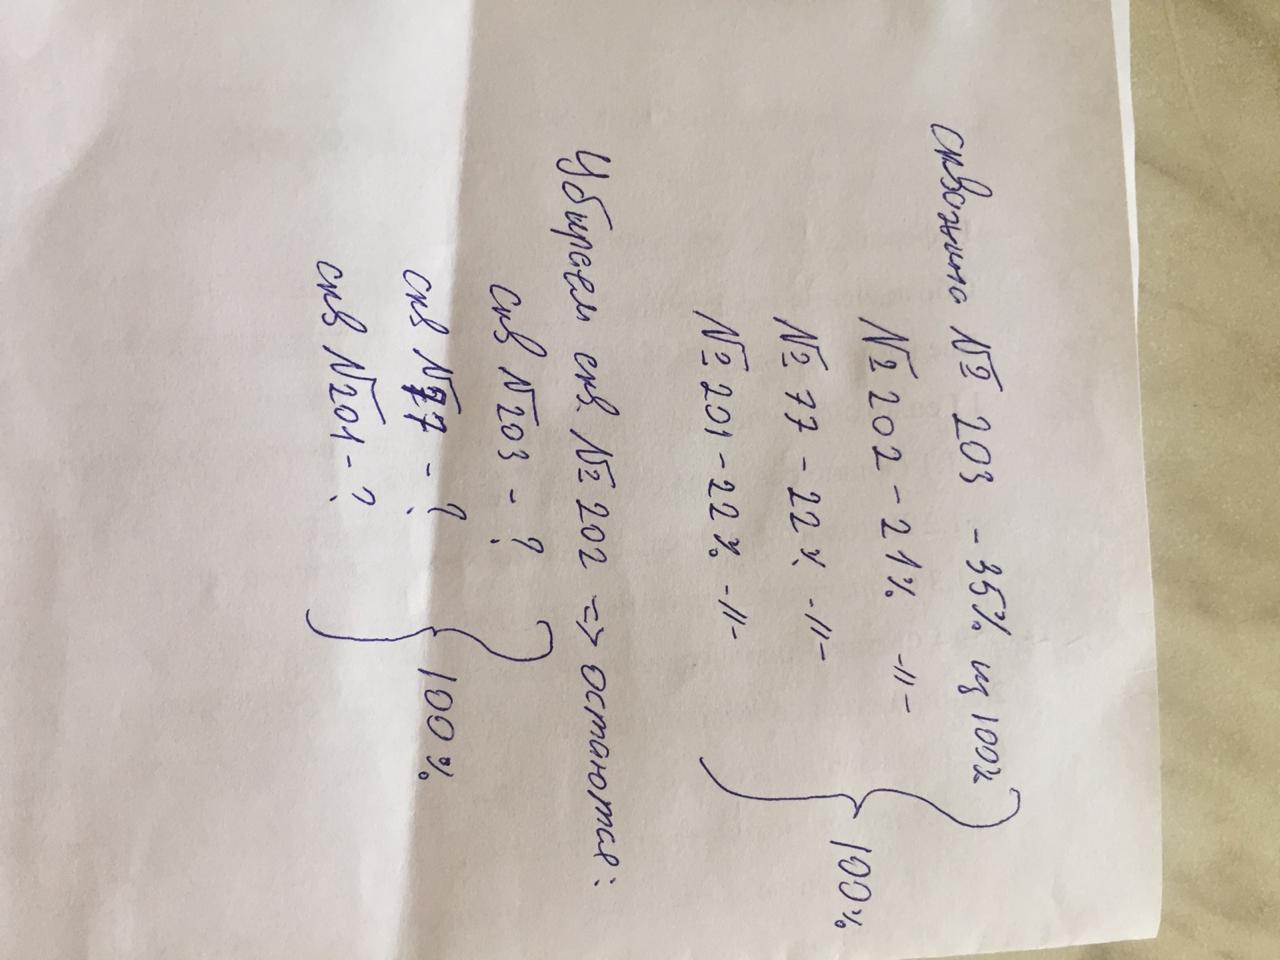 скважина № 203 - 35% из 100%
№ 202 - 21% -//-
№ 77 - 22% -//-
№ 201 - 22% -//-
100%
Убираем скв. № 202 => остаются:
скв №203 - ?
скв №77 - ?
скв №201 - ?
100%